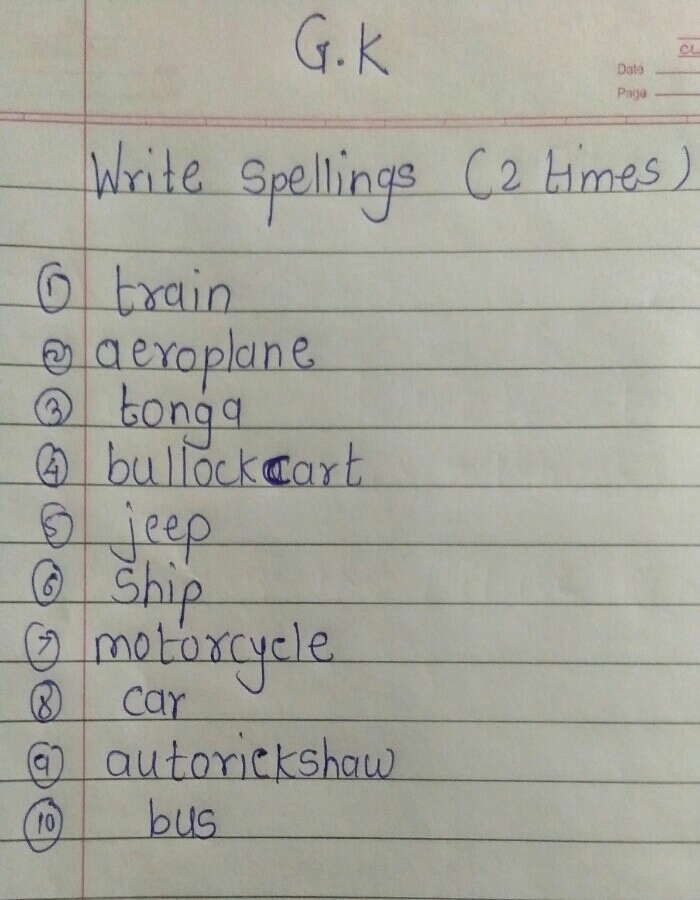 G.K
CL
Date
Page
Write Spellings (2 times)
1 train
2 aeroplane
3 tonga
4 bullockcart
5 jeep
6 Ship
7 motorcycle
8 car
9 autorickshaw
10 bus